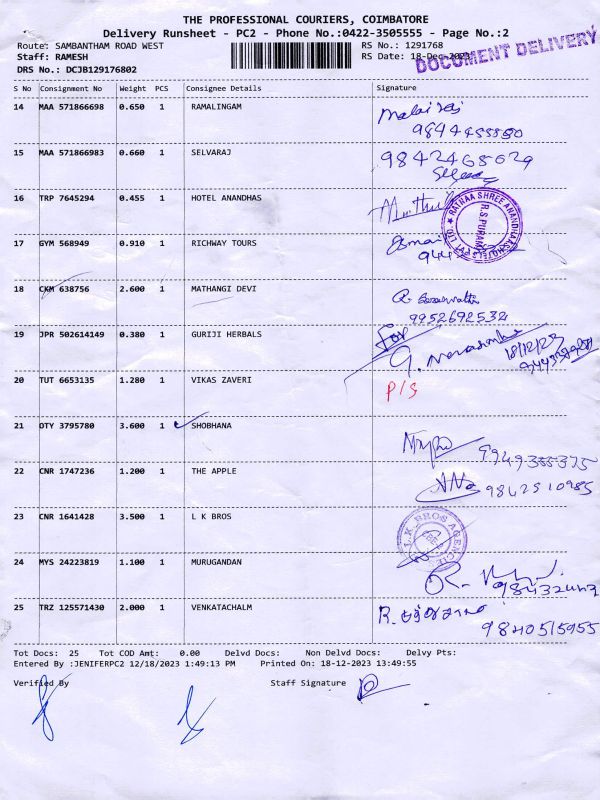 THE PROFESSIONAL COURIERS, COIMBATORE
Delivery Runsheet - PC2 - Phone No.:0422-3505555 - Page No.:2
Route: SAMBANTHAM ROAD WEST RS No.: 1291768
Staff: RAMESH RS Date: 18-Dec-2023
DOCUMENT DELIVERY
DRS No.: DCJB129176802
S No Consignment No Weight PCS Consignee Details Signature
14 MAA 571866698 0.650 1 RAMALINGAM
15 MAA 571866983 0.660 1 SELVARAJ
16 TRP 7645294 0.455 1 HOTEL ANANDHAS
R.S.PURAM
17 GYM 568949 0.910 1 RICHWAY TOURS
18 CKM 638756 2.600 1 MATHANGI DEVI
9952692532
19 JPR 502614149 0.380 1 GURIJI HERBALS For
18/12/23
20 TUT 6653135 1.280 1 VIKAS ZAVERI
P/S
21 OTY 3795780 3.600 1 SHOBHANA
9949355375
22 CNR 1747236 1.200 1 THE APPLE
9842510985
23 CNR 1641428 3.500 1 L K BROS
L.K. BROS AGENCIE
24 MYS 24223819 1.100 1 MURUGANDAN
25 TRZ 125571430 2.000 1 VENKATACHALM
9840515955
Tot Docs: 25 Tot COD Amt: 0.00 Delvd Docs: Non Delvd Docs: Delvy Pts:
Entered By :JENIFERPC2 12/18/2023 1:49:13 PM Printed On: 18-12-2023 13:49:55
Verified By Staff Signature